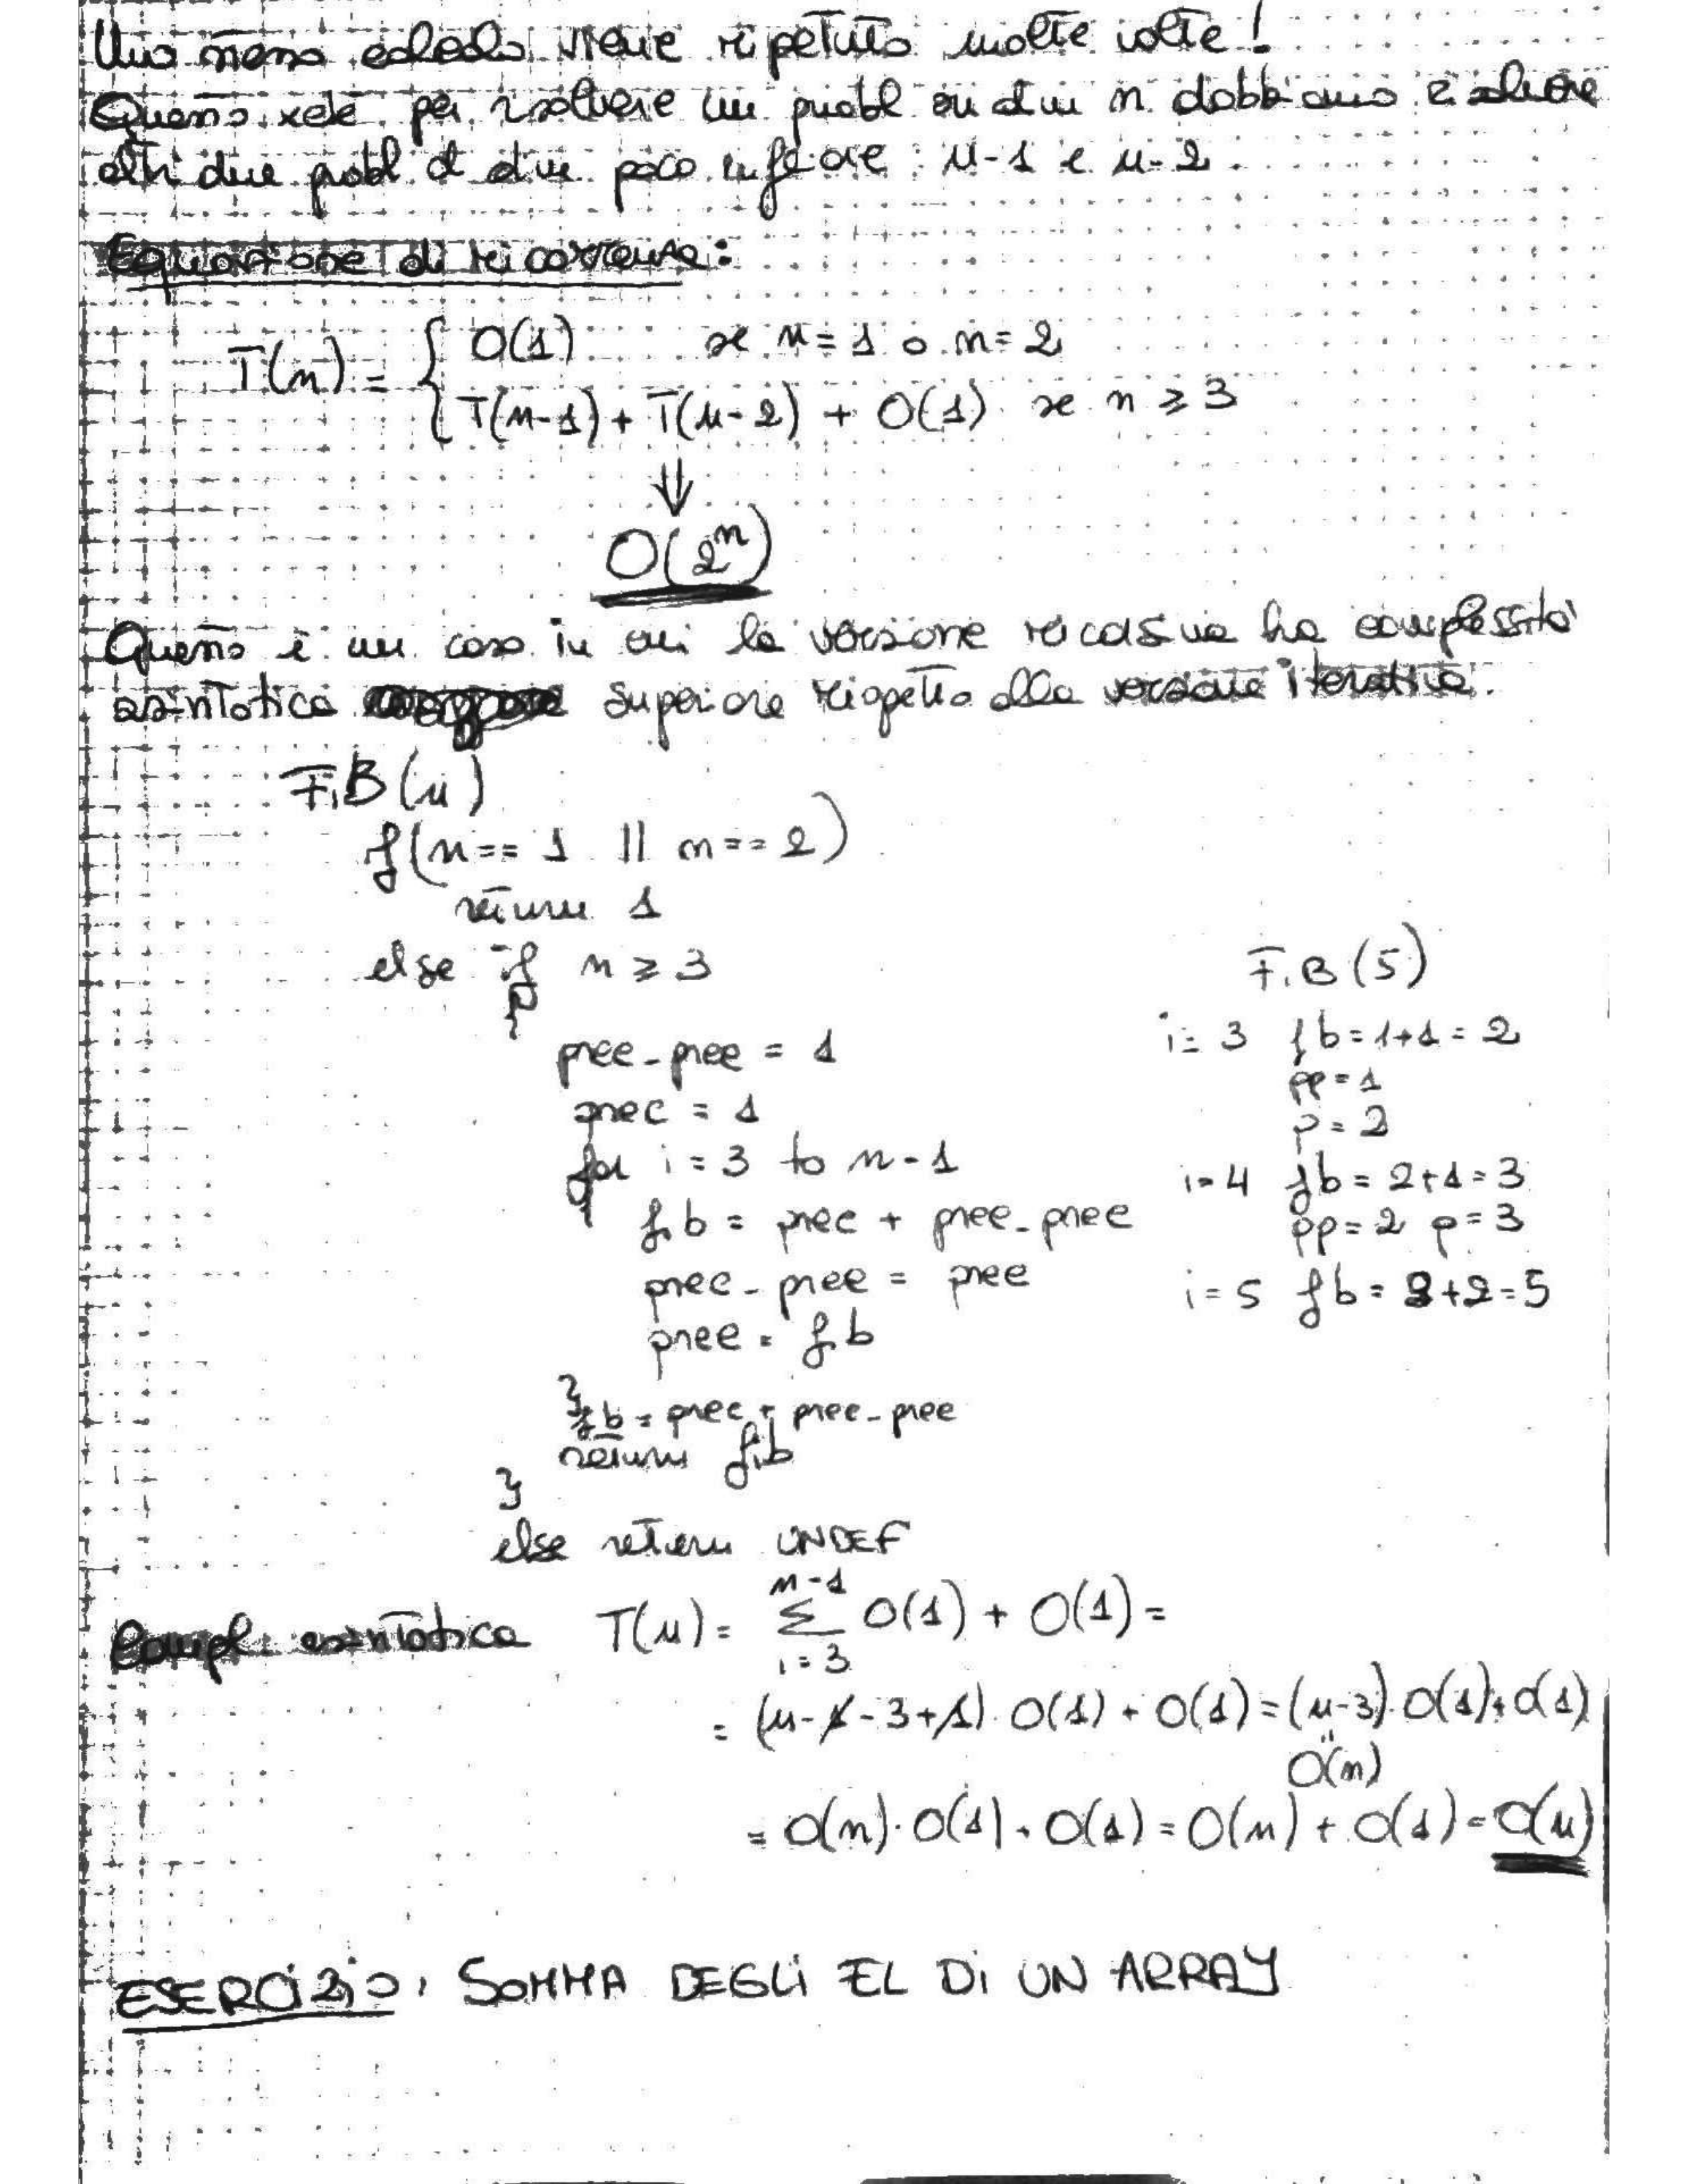 Uno stesso calcolo viene ripetuto molte volte!
Questo xché per risolvere un probl di dim n dobbiamo risolvere
altri due probl di dim poco inferiore: n-1 e n-2.
Equazione di ricorrenza:
T(n) = { O(1) se n=1 o n=2
T(n-1) + T(n-2) + O(1) se n ≥ 3
⇓
O(2^n)
Questo è un caso in cui la versione ricorsiva ha complessità
asintotica superiore rispetto alla versione iterativa.
FIB(n)
if(n== 1 || n==2)
return 1
else if n ≥ 3
{
prec_prec = 1
prec = 1
for i = 3 to n-1
{
fib = prec + prec_prec
prec_prec = prec
prec = fib
}
fib = prec + prec_prec
return fib
}
else return UNDEF
FIB(5)
i= 3 fib = 1+1 = 2
pp = 1
p = 2
i=4 fib = 2+1 = 3
pp=2 p=3
i=5 fib = 3+2=5
Compl. asintotica T(n) = Σ_{i=3}^{n-1} O(1) + O(1) =
= (n-1-3+1) · O(1) + O(1) = (n-3) · O(1) + O(1)
"
O(n)
= O(n) · O(1) + O(1) = O(n) + O(1) = O(n)
ESERCIZIO: SOMMA DEGLI EL DI UN ARRAY